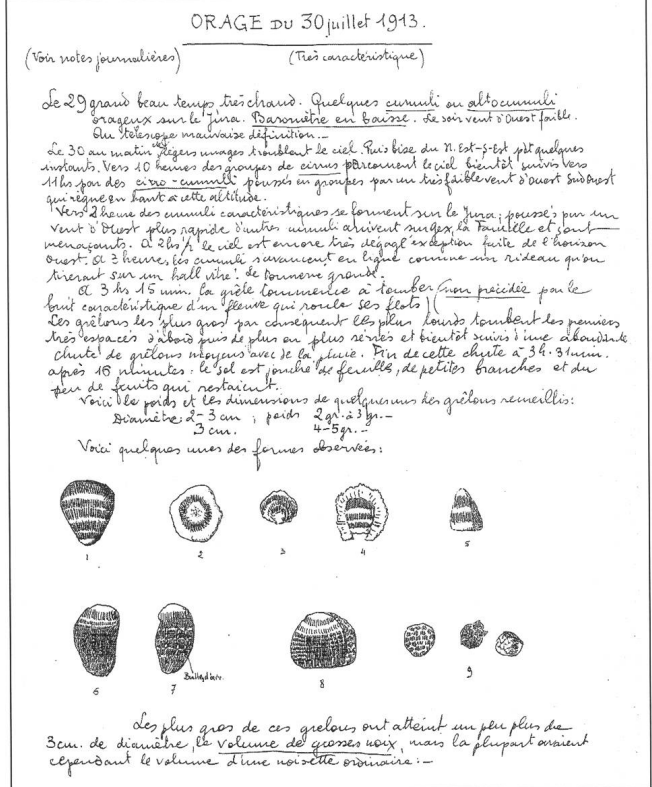 ORAGE DU 30 juillet 1913.
(Voir notes journalières) (Très caractéristique)
Le 29 grand beau temps très chaud. Quelques cumuli ou altocumuli
orageux sur le Jura. Baromètre en baisse. Le soir vent d'Ouest faible.
Au télescope mauvaise définition.-
Le 30 au matin légers nuages troublant le ciel. Puis bise du N.Est-S-Est pdt quelques
instants. Vers 10 heures des groupes de cirrus parcourent le ciel bientôt suivis vers
11 hs par des cirro-cumuli poussés en groupes par un très faible vent d'Ouest Sud Ouest
qui règne en haut à cette altitude.
Vers 2 heure des cumuli caractéristiques se forment sur le Jura; poussés par un
vent d'Ouest plus rapide d'autres cumuli arrivent sur la Faucille et sont
menaçants. A 2hs ½ le ciel est encore très dégagé exception faite de l'horizon
ouest. A 3 heures, les cumuli s'avancent en ligne comme un rideau qu'on
tirerait sur un hall vitré. Le tonnerre gronde.
A 3 hs 15 min. la grêle commence à tomber (non précédée par le
bruit caractéristique d'un fleuve qui roule ses flots)
Les grêlons les plus gros par conséquent les plus lourds tombent les premiers
très espacés d'abord puis de plus en plus serrés et bientôt suivis d'une abondante
chute de grêlons moyens avec de la pluie. Fin de cette chute à 3h. 31 min.
après 16 minutes: le sol est jonché de feuilles, de petites branches et du
peu de fruits qui restaient.
Voici le poids et les dimensions de quelques uns des grêlons recueillis:
Diamètre: 2-3 cm ; poids 2 gr. à 3 gr.-
3 cm. 4-5 gr.-
Voici quelques unes des formes observées:
1 2 3 4 5
6 7 8 9
Bulles d'air.
Les plus gros de ces grelons ont atteint un peu plus de
3 cm. de diamètre, le volume de grosses noix, mais la plupart avaient
cependant le volume d'une noisette ordinaire:-